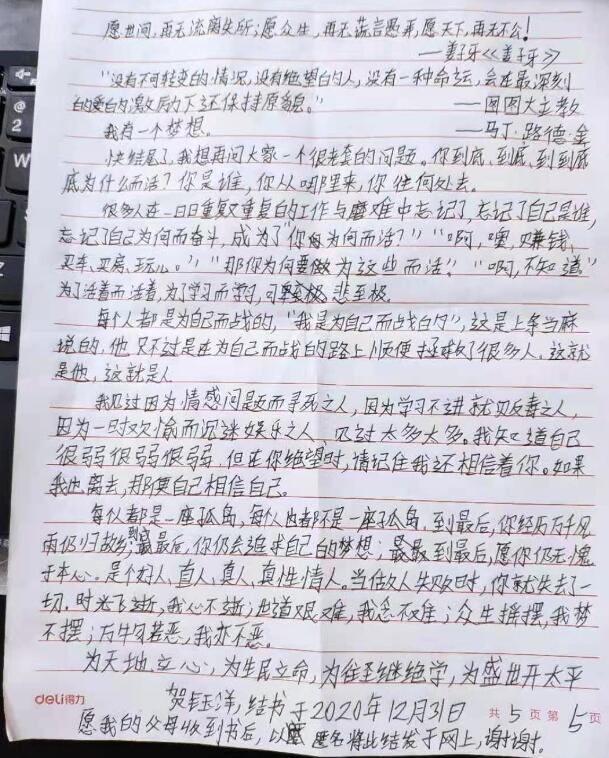 愿世间,再无流离失所;愿众生,再无谎言愚弄,愿天下,再无不公!
——姜子牙《姜子牙》
“没有不可转变的情况,没有绝望的人,没有一种命运,会在最深刻
的爱的激励下还保持原貌。”
——图图大主教
我有一个梦想.
——马丁·路德·金
快结尾了,我想再问大家一个很老套的问题。你到底、到底、到到底
底为什么而活?你是谁,你从哪里来,你往何处去。
很多人在一日日重复又重复的工作与磨难中忘记了,忘记了自己是谁,
忘记了自己为何而奋斗,成为了“你为何而活?”“啊,噢,赚钱、
买车、买房、玩儿。”“那你为何要为这些而活?”“啊,不知道”
为了活着而活着,为了学习而学习,可至极,悲至极.
每个人都是为自己而战的,“我是为自己而战的”,这是上条当麻
说的,他只不过是在为自己而战的路上顺便拯救了很多人,这就
是他,这就是人
我见过因为情感问题而寻死之人,因为学习不进就见弃之人,
因为一时欢愉而沉迷娱乐之人,见过太多太多。我知道自己
很弱很弱很弱,但在你绝望时,请记住我还相信着你。如果
我也离去,那便自己相信自己。
每人都是一座孤岛,每个人也都不是一座孤岛,到最后,你经历万千风
雨仍归故乡;到最最后,你仍会追求自己的梦想;最最到最后,愿你仍无愧
于本心.是个好人、直人、真人、真性情人。当估人失败时,你就失去了一
切.时光飞逝,我心不逝;世道艰难,我念不难;众生摇摆,我梦
不摆;万物若恶,我亦不恶。
为天地立心,为生民立命,为往圣继绝学,为盛世开太平
deli得力
贺钰洋,结书于2020年12月31日
共5页第5页
愿我的父母收到书后,以匿名将此结发于网上,谢谢。
@
2
W
Z